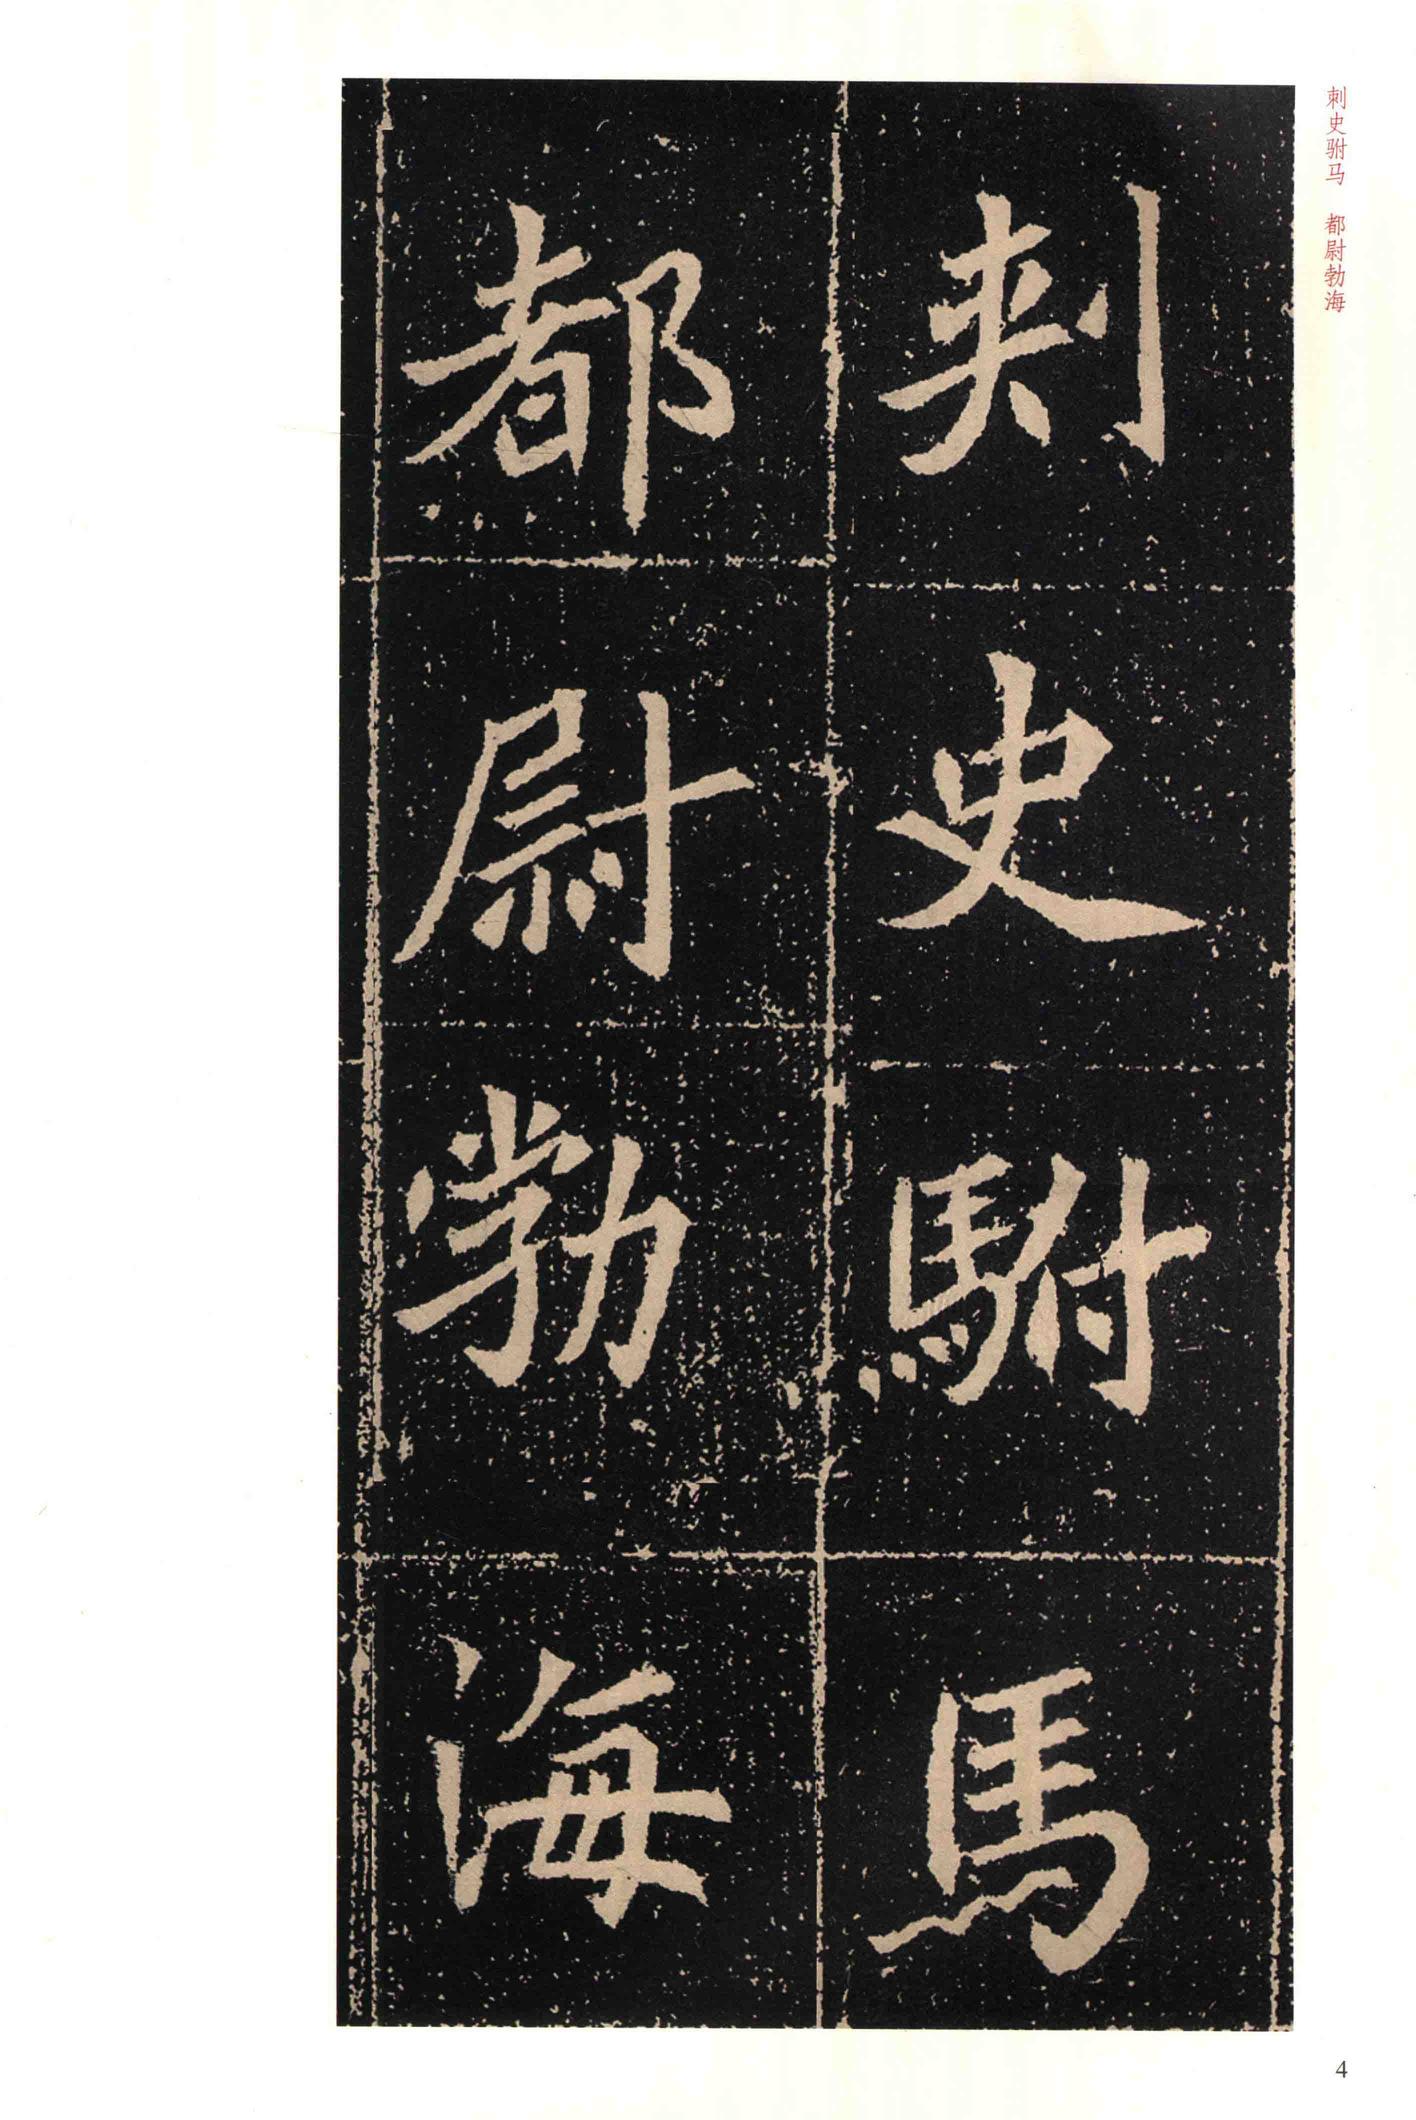 刺史驸马　都尉勃海
刺史駙馬
都尉勃海
4